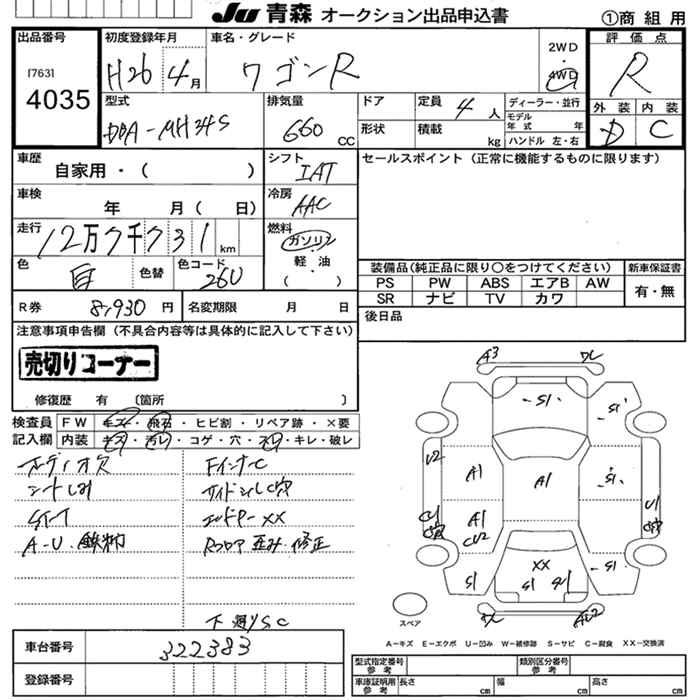 JU 青森 オークション出品申込書
①商組用
出品番号
17631
4035
初度登録年月
H26 4月
車名・グレード
ワゴンR
2WD
・
4WD
評価点
R
外装 内装
D C
型式
DBA-MH34S
排気量
660 CC
ドア
形状
定員 4 人
積載 kg
ディーラー・並行
モデル年式 年
ハンドル 左・右
車歴
自家用・( )
シフト
IAT
セールスポイント (正常に機能するものに限ります)
車検
年 月( 日)
冷房
AAC
走行
12万7千731 km
燃料
ガソリン
軽・油
( )
色
白
色替
色コード
26U
装備品(純正品に限り〇をつけてください)
新車保証書
PS PW ABS エアB AW
SR ナビ TV カワ
有・無
R券 8,930円
名変期限 月 日
後日品
注意事項申告欄 (不具合内容等は具体的に記入して下さい)
売切りコーナー
修復歴 有 〔箇所 〕
検査員記入欄
FW キズ・飛石・ヒビ割・リペア跡・×要
内装 キズ・汚レ・コゲ・穴・スレ・キレ・破レ
オーディオ欠
シートしみ
A-U・鉄粉
FインナーC
サイドシルC穴
エンドP-XX
Rフロア 歪み・修正
下廻りSC
A3
S1
S1
U2
A1
A1
S1
U1
C1
A1
CU2
S1
XX
S1
S1
スペア
A-キズ E-エクボ U-凹み W-補修跡 S-サビ C-腐食 XX-交換済
車台番号
322383
登録番号
型式指定番号
参考
類別区分番号
参考
車庫証明用
参考
長さ cm
幅 cm
高さ cm